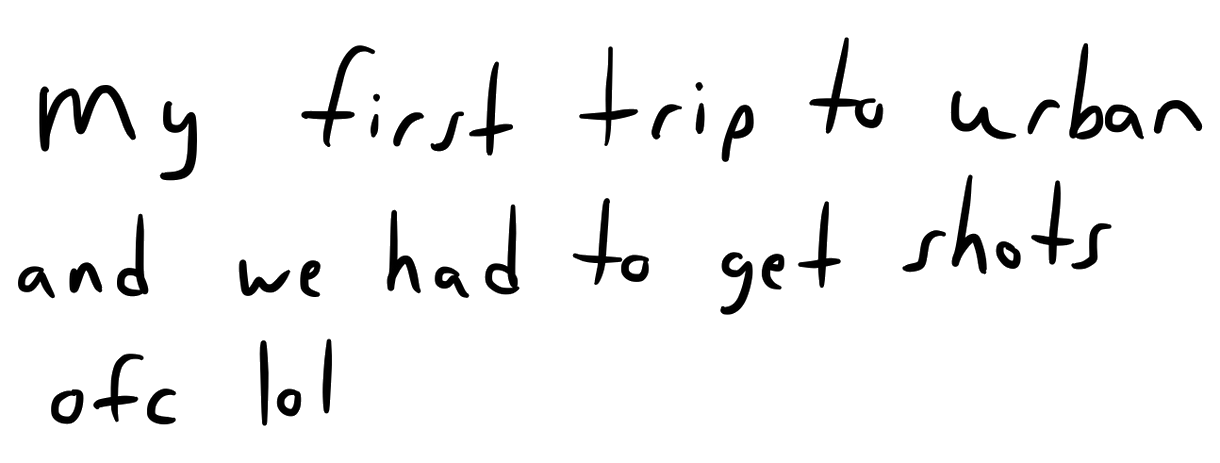 my first trip to urban
and we had to get shots
ofc lol